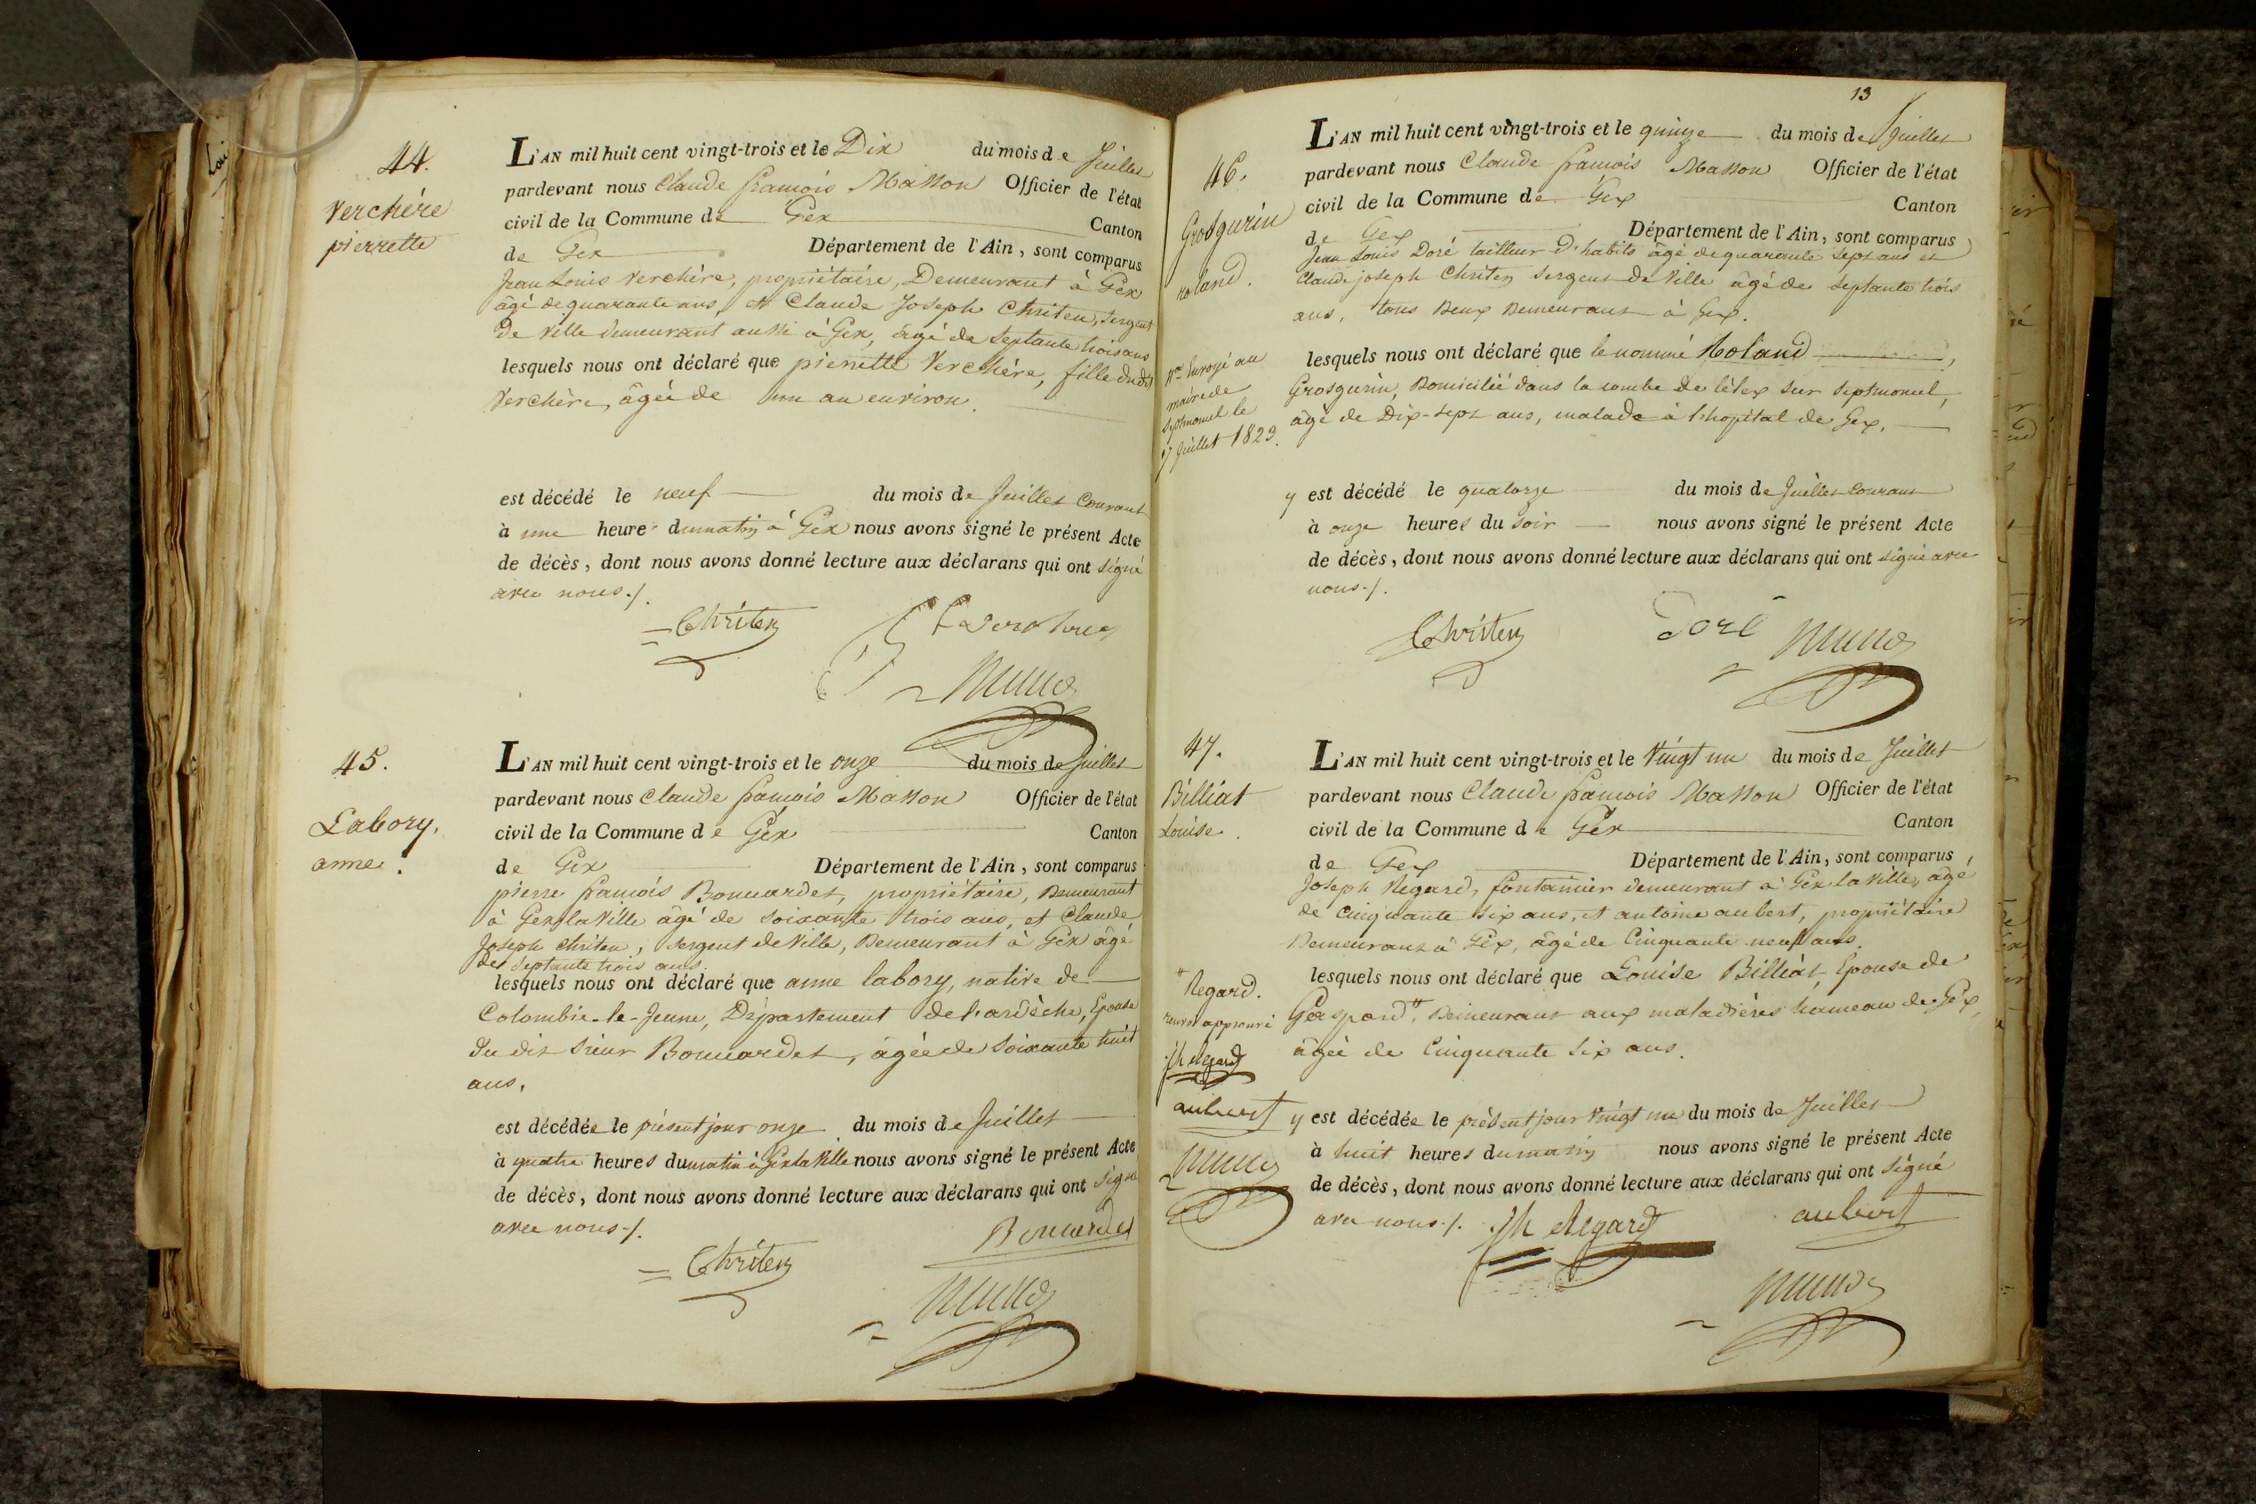 44.
Verchère
pierrette
L'AN mil huit cent vingt-trois et le Dix du mois de Juillet
pardevant nous Claude françois Masson Officier de l'état
civil de la Commune de Gex Canton
de Gex Département de l'Ain, sont comparus
Jean Louis Verchère, propriétaire, Demeurant à Gex
âgé de quarante ans, et Claude Joseph Christen, Sergent
de Ville demeurant aussi à Gex, âgé de septante trois ans
lesquels nous ont déclaré que pierrette Verchère, fille dudit
Verchère, âgée de un an environ.
est décédé le neuf du mois de Juillet Courant
à une heure du matin à Gex nous avons signé le présent Acte
de décès, dont nous avons donné lecture aux déclarans qui ont signé
avec nous./.
Christen
45.
Labory,
anne.
L'AN mil huit cent vingt-trois et le onze du mois de Juillet
pardevant nous Claude françois Masson Officier de l'état
civil de la Commune de Gex Canton
de Gex Département de l'Ain, sont comparus
pierre françois Bonnardet, propriétaire, Demeurant
à Gex la Ville âgé de soixante trois ans, et Claude
Joseph Christen, Sergent de Ville, Demeurant à Gex âgé
de septante trois ans
lesquels nous ont déclaré que anne labory, native de
Colombie-le-Jeune, Département de l'ardèche, Epouse
du dit sieur Bonnardet, âgée de soixante huit
ans.
est décédée le présent jour onze du mois de Juillet
à quatre heures du matin à Gex la Ville nous avons signé le présent Acte
de décès, dont nous avons donné lecture aux déclarans qui ont signé
avec nous./.
Bonnardet
Christen
13
46.
Grosgurin
roland.
envoyé au
maire de
septmoncel le
17 Juillet 1823.
L'AN mil huit cent vingt-trois et le quinze du mois de Juillet
pardevant nous Claude françois Masson Officier de l'état
civil de la Commune de Gex Canton
de Gex Département de l'Ain, sont comparus
Jean Louis Doré tailleur d'habits âgé de quarante sept ans et
Claude joseph Christen sergent de Ville âgé de septante trois
ans, tous Deux Demeurant à Gex.
lesquels nous ont déclaré que le nommé Roland,
Grosgurin, Domicilié dans la combe de lélex sur septmoncel,
âgé de Dix-sept ans, malade à l'hopital de Gex,
y est décédé le quatorze du mois de Juillet courant
à onze heures du soir nous avons signé le présent Acte
de décès, dont nous avons donné lecture aux déclarans qui ont signé avec
nous./.
Christen Doré
47.
Billiat
Louise.
L'AN mil huit cent vingt-trois et le Vingt un du mois de Juillet
pardevant nous Claude françois Masson Officier de l'état
civil de la Commune de Gex Canton
de Gex Département de l'Ain, sont comparus
Joseph Regard, fontainier demeurant à Gex la Ville, âgé
de cinquante six ans, et antoine aubert, propriétaire
Demeurant à Gex, âgé de Cinquante neuf ans.
lesquels nous ont déclaré que Louise Billiat, Epouse de
Gaspard # Demeurant aux maladières hameau de Gex,
âgée de Cinquante six ans.
# Regard.
renvoi approuvé
Jh Regard
aubert
y est décédée le présent jour Vingt un du mois de Juillet
à huit heures du matin nous avons signé le présent Acte
de décès, dont nous avons donné lecture aux déclarans qui ont signé
avec nous./. Jh Regard aubert